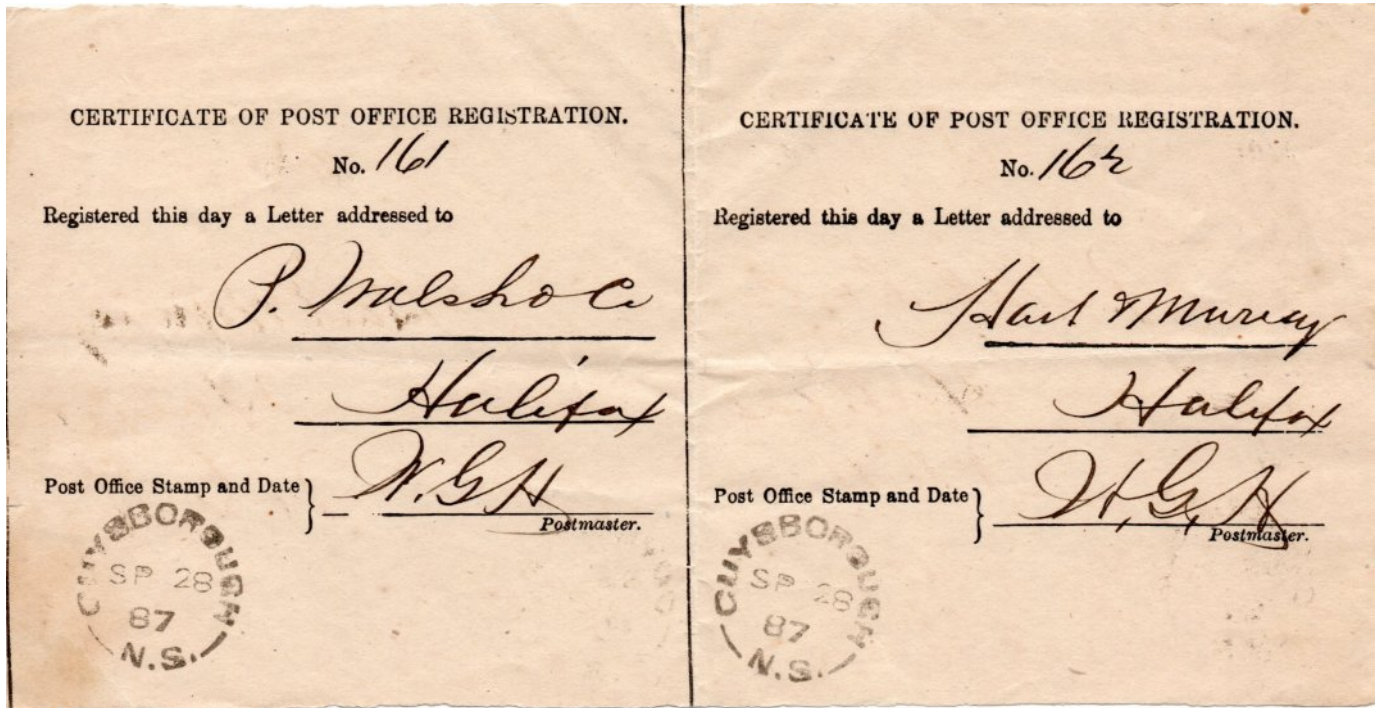 CERTIFICATE OF POST OFFICE REGISTRATION.
No. 161
Registered this day a Letter addressed to
P. Walsh & Co
Halifax
Post Office Stamp and Date } W. G. H
Postmaster.
GUYSBOROUGH
SP 28
87
N.S.
CERTIFICATE OF POST OFFICE REGISTRATION.
No. 162
Registered this day a Letter addressed to
Hart Murray
Halifax
Post Office Stamp and Date } W. G. H
Postmaster.
GUYSBOROUGH
SP 28
87
N.S.